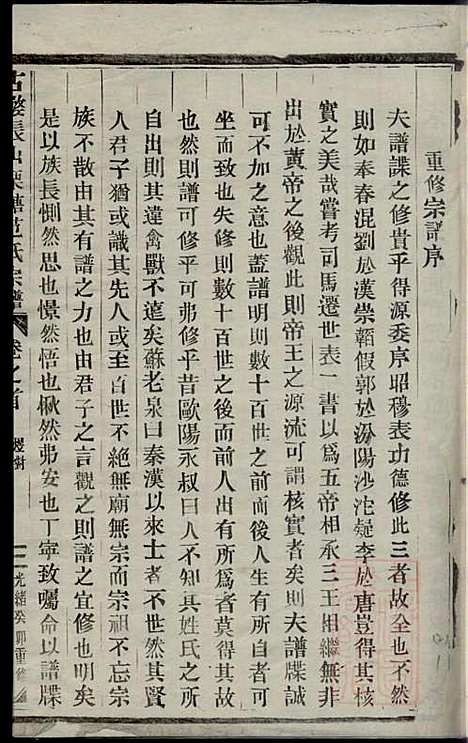 重修宗譜序
夫譜諜之修貴乎得源委序昭穆表功德修此三者故全也不然
則如奉春混劉於漢崇韜假郭於汾陽沙沱疑李於唐豈得其核
實之美哉嘗考司馬遷世表一書以爲五帝相承三王相繼無非
出於黄帝之後觀此則帝王之源流可謂核實者矣則夫譜牒誠
可不加之意也蓋譜明則數十百世而前後人生有所考可以
坐而致也失修則數十百世之後而前人出有所爲者莫得其故
也然則譜可修乎可弗修乎昔歐陽永叔曰人不知其姓氏之所
自出則其違禽獸不遠矣蘇老泉曰秦漢以來士者不世然其賢
人君子猶或識其先人或至百世不絕無廟無宗而宗祖不忘宗
族不散由其有譜之力也由君子之言觀之則譜之宜修也明矣
是以族長惻然思也憬然悟也楸然弗安也丁寧致囑命以譜牒
古婺長山栗塘范氏宗譜 卷之首 一 光緒癸卯重修